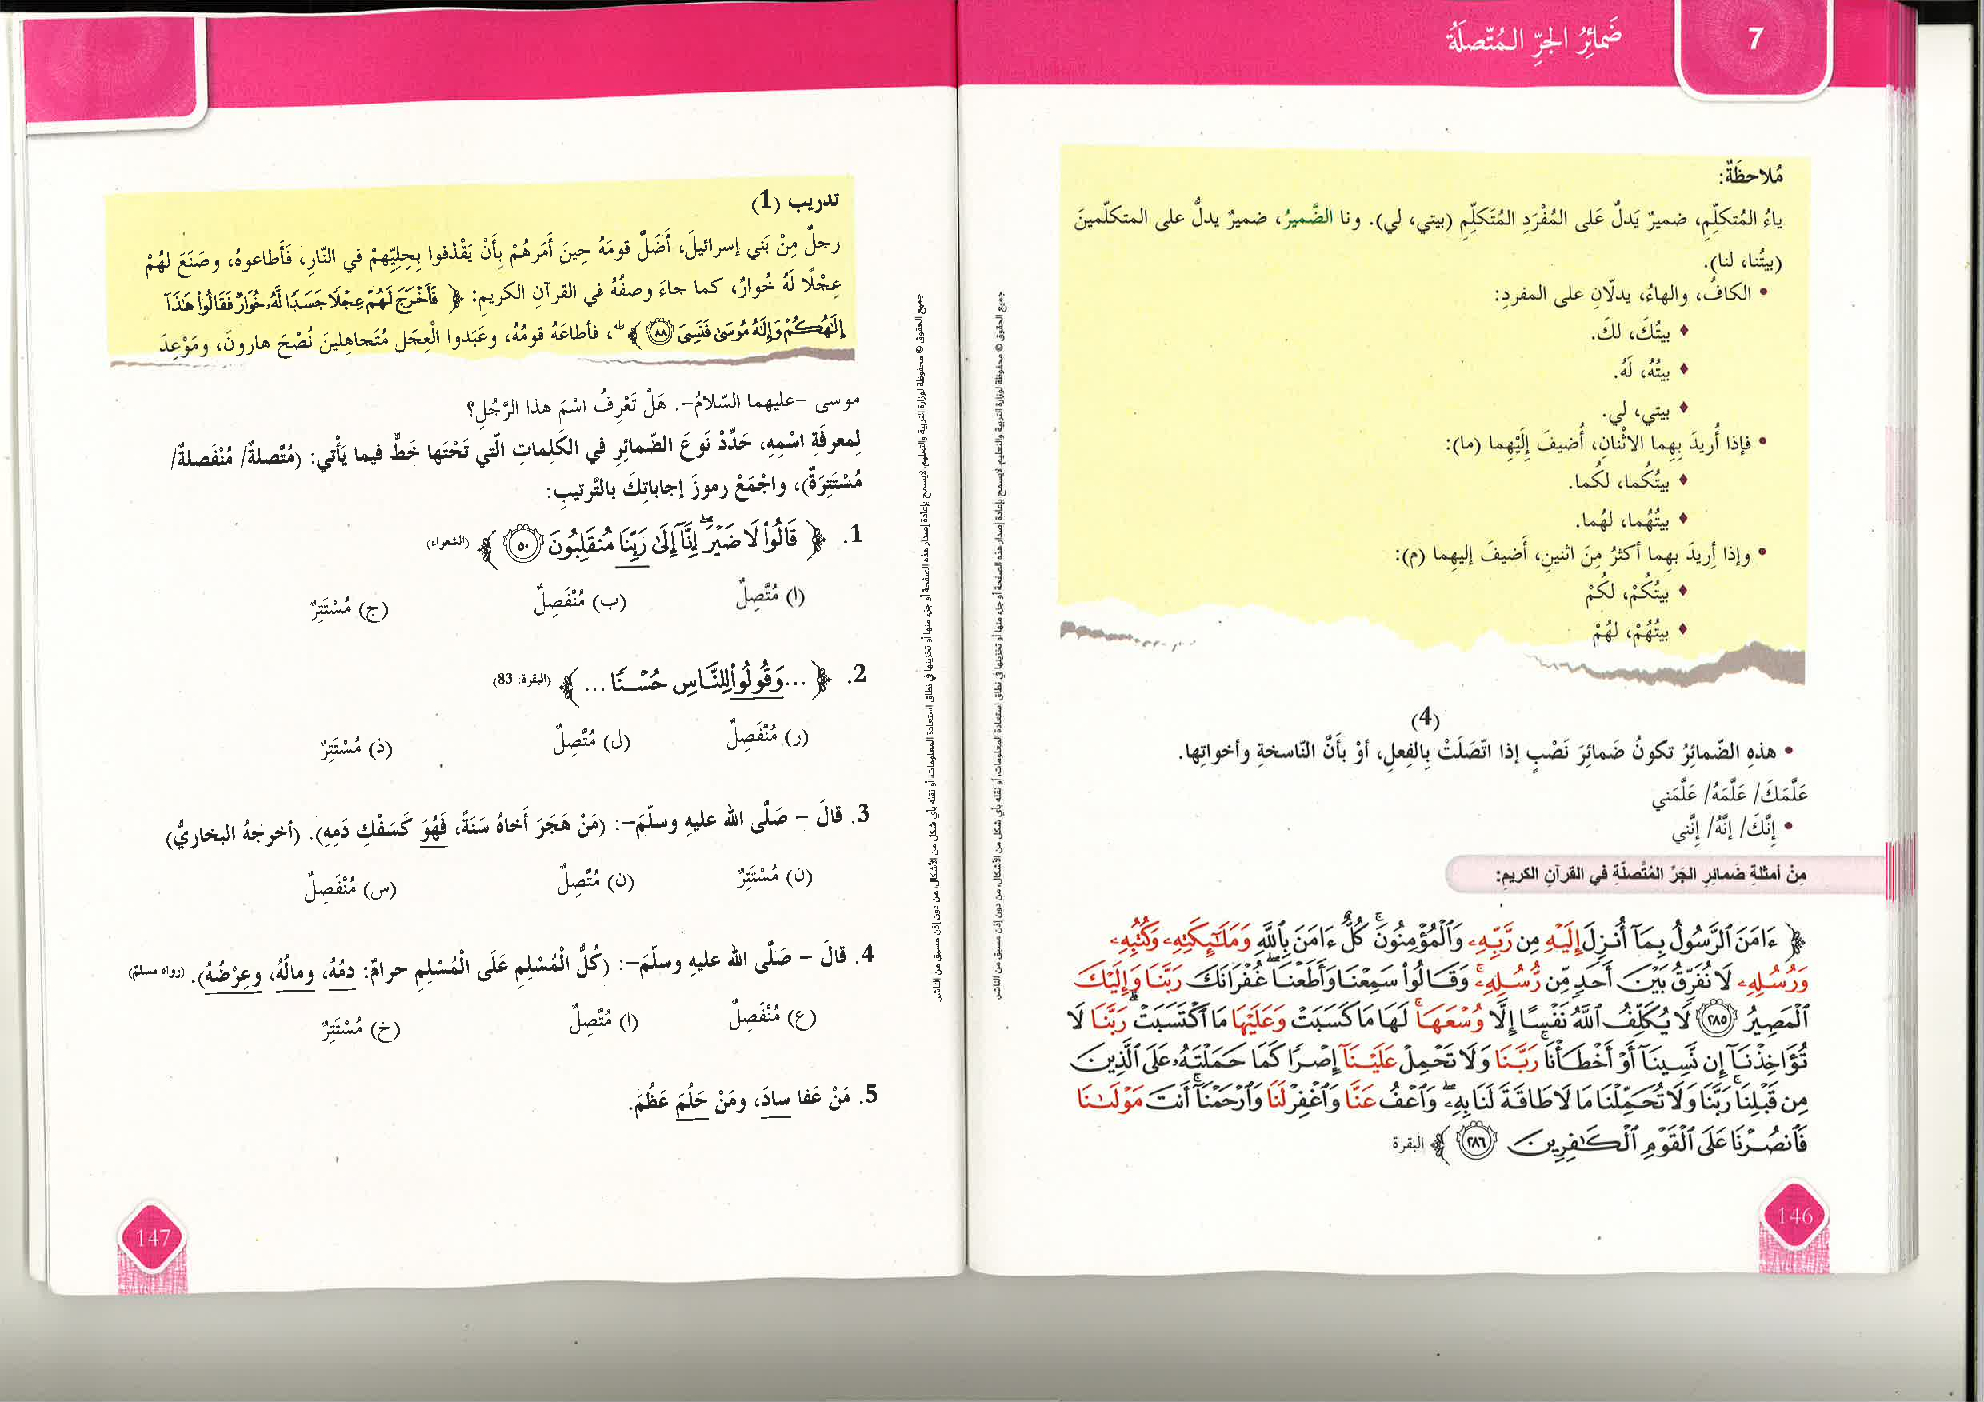 7
ضَمائِرُ الجَرِّ المُتّصلَةُ
مُلاحظَةٌ:
ياءُ المُتكلِّمِ، ضميرٌ يَدلّ عَلى المُفْرَدِ المُتَكلِّمِ (بيتي، لي). ونا الضَّميرُ، ضميرٌ يدلُّ على المتكلّمينَ
(بيتُنا، لنا).
• الكافُ، والهاءُ، يدلّانِ على المفردِ:
♦ بيتُكَ، لكَ.
♦ بيتُهُ، لَهُ.
♦ بيتي، لي.
• فإذا أُريدَ بِهِما الاثْنانِ، أُضيفَ إِلَيْهِما (ما):
♦ بيتُكُما، لكُما.
♦ بيتُهُما، لهُما.
• وإذا أريدَ بهِما أكثرُ مِنَ اثنينِ، أُضيفَ إليهِما (م):
♦ بيتُكُمْ، لكُمْ
♦ بيتُهُمْ، لهُمْ
(4)
• هذهِ الضّمائِرُ تكونُ ضَمائِرَ نَصْبٍ إذا اتّصَلَتْ بِالفِعلِ، أوْ بأنَّ النّاسخةِ وأخواتِها.
عَلَّمَكَ/ عَلَّمَهُ/ عَلَّمَني
• إنَّكَ/ إنَّهُ/ إنَّني
مِنْ أمثلةِ ضَمائرِ الجَرِّ المُتّصلَةِ في القرآنِ الكريمِ:
﴿ ءَامَنَ ٱلرَّسُولُ بِمَآ أُنزِلَ إِلَيْهِ مِن رَّبِّهِۦ وَٱلْمُؤْمِنُونَۚ كُلٌّ ءَامَنَ بِٱللَّهِ وَمَلَٰٓئِكَتِهِۦ وَكُتُبِهِۦ
وَرُسُلِهِۦ لَا نُفَرِّقُ بَيْنَ أَحَدٍ مِّن رُّسُلِهِۦۚ وَقَالُوا۟ سَمِعْنَا وَأَطَعْنَاۖ غُفْرَانَكَ رَبَّنَا وَإِلَيْكَ
ٱلْمَصِيرُ ٢٨٥ لَا يُكَلِّفُ ٱللَّهُ نَفْسًا إِلَّا وُسْعَهَاۚ لَهَا مَا كَسَبَتْ وَعَلَيْهَا مَا ٱكْتَسَبَتْۗ رَبَّنَا لَا
تُؤَاخِذْنَآ إِن نَّسِينَآ أَوْ أَخْطَأْنَاۚ رَبَّنَا وَلَا تَحْمِلْ عَلَيْنَآ إِصْرًا كَمَا حَمَلْتَهُۥ عَلَى ٱلَّذِينَ
مِن قَبْلِنَاۚ رَبَّنَا وَلَا تُحَمِّلْنَا مَا لَا طَاقَةَ لَنَا بِهِۦۖ وَٱعْفُ عَنَّا وَٱغْفِرْ لَنَا وَٱرْحَمْنَآۚ أَنتَ مَوْلَىٰنَا
فَٱنصُرْنَا عَلَى ٱلْقَوْمِ ٱلْكَٰفِرِينَ ٢٨٦ ﴾ البقرة
146
جميع الحقوق © محفوظة لوزارة التربية والتعليم. لايسمح بإعادة إصدار هذه الصفحة أو جزء منها أو تخزينها في نطاق استعادة المعلومات، أو نقله بأي شكل من الأشكال، من دون إذن مسبق من الناشر
جميع الحقوق © محفوظة لوزارة التربية والتعليم. لايسمح بإعادة إصدار هذه الصفحة أو جزء منها أو تخزينها في نطاق استعادة المعلومات، أو نقله بأي شكل من الأشكال، من دون إذن مسبق من الناشر
تدريب (1)
رجلٌ مِنْ بَني إسرائيلَ، أَضَلَّ قومَهُ حِينَ أَمَرهُمْ بِأَنْ يَقْذفوا بِحِليِّهِمْ في النّارِ، فَأَطاعوهُ، وصَنَعَ لهُمْ
عِجْلًا لَهُ خُوارٌ، كما جاءَ وصفُهُ في القرآنِ الكريمِ: ﴿ فَأَخْرَجَ لَهُمْ عِجْلًا جَسَدًا لَّهُۥ خُوَارٌ فَقَالُوا۟ هَٰذَآ
إِلَٰهُكُمْ وَإِلَٰهُ مُوسَىٰ فَنَسِىَ ٨٨ ﴾ طه، فأطاعَهُ قومُهُ، وعَبَدوا الْعِجَل مُتَجاهِلينَ نُصْحَ هارونَ، ومَوْعِدَ
موسى -عليهما السّلامُ-. هَلْ تَعْرِفُ اسْمَ هذا الرَّجُلِ؟
لِمعرفَةِ اسْمِهِ، حَدِّدْ نَوعَ الضّمائِرِ في الكَلِماتِ الّتي تَحْتَها خَطٌّ فيما يَأْتي: (مُتَّصلةٌ/ مُنْفَصلةٌ/
مُسْتَتِرَةٌ)، واجْمَعْ رموزَ إجاباتِكَ بالتَّرتيبِ:
1. ﴿ قَالُوا۟ لَا ضَيْرَۖ إِنَّآ إِلَىٰ رَبِّنَا مُنقَلِبُونَ ٥٠ ﴾ (الشعراء)
(ا) مُتَّصِلٌ (ب) مُنْفَصِلٌ (ج) مُسْتَتِرٌ
2. ﴿ ... وَقُولُوا۟ لِلنَّاسِ حُسْنًا ... ﴾ (البقرة: 83)
(ر) مُنْفَصِلٌ (ل) مُتَّصِلٌ (ذ) مُسْتَتِرٌ
3. قالَ - صَلَّى الله عليهِ وسلّمَ-: (مَنْ هَجَرَ أخاهُ سَنَةً، فَهُوَ كَسَفْكِ دَمِهِ). (أخرجهُ البخاريُّ)
(ن) مُسْتَتِرٌ (ن) مُتَّصِلٌ (س) مُنْفَصِلٌ
4. قالَ - صَلَّى الله عليهِ وسلّمَ-: (كُلُّ الْمُسْلِمِ عَلَى الْمُسْلِمِ حرامٌ: دمُهُ، ومالُهُ، وعِرْضُهُ). (رواه مسلم)
(ع) مُنْفَصِلٌ (ا) مُتَّصِلٌ (خ) مُسْتَتِرٌ
5. مَنْ عَفا سادَ، ومَنْ حَلُمَ عَظُمَ.
147